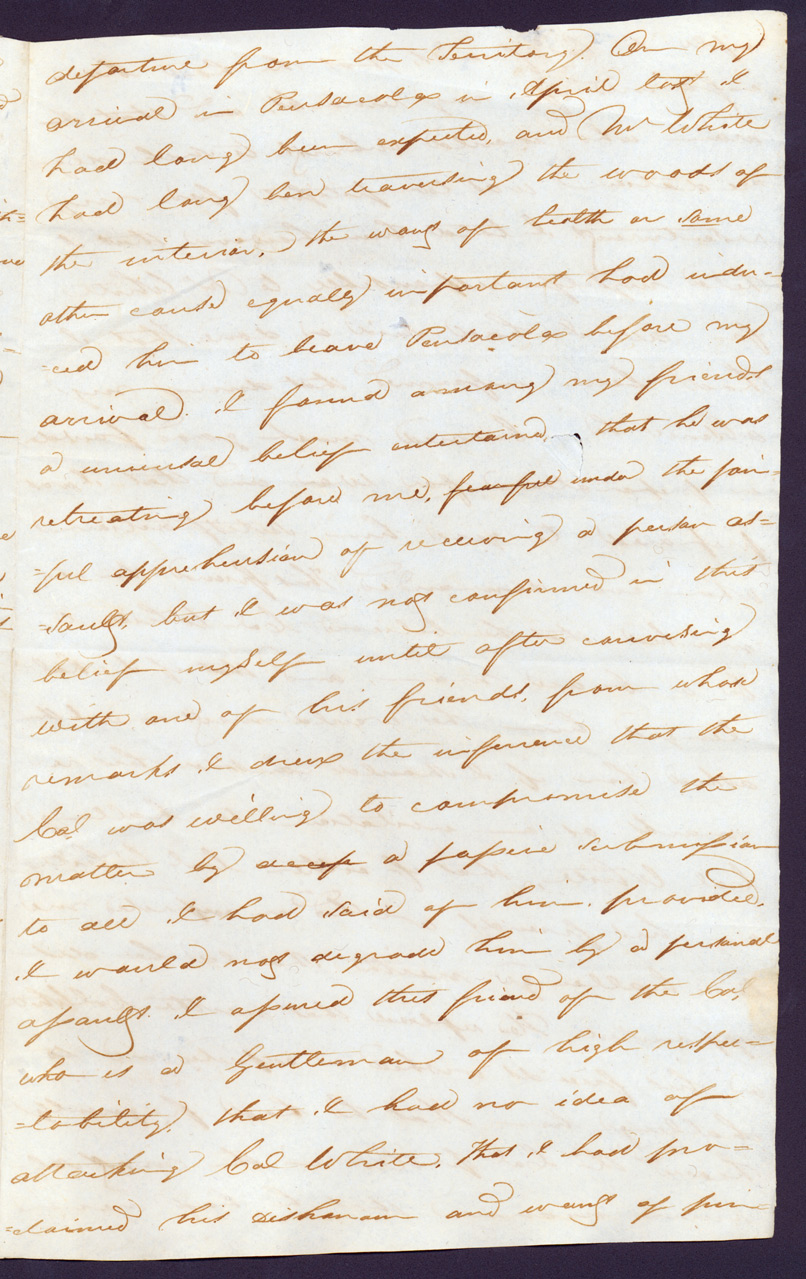 departure from the Territory. On my
arrival in Pensacola in April last I
had long been expected, and Mr White
had long ben traversing the woods of
the interior, the want of health or some
other cause equally important had indu-
-ced him to leave Pensacola before my
arrival. I found among my friends
a universal belief entertained that he was
retreating before me, fearful under the pain-
-ful apprehension of receiving a person as-
-sault, but I was not confirmed in this
belief myself until after conversing
with one of his friends, from whose
remarks I drew the inference that the
Col was willing to compromise the
matter by a passive submission
to all I had said of him, provided,
I would not degrade him by a personal
assault. I assured this friend of the Col,
who is a Gentleman of high respec-
-tability, that I had no idea of
attacking Col White, that I had pro-
-claimed his dishonour and want of prin